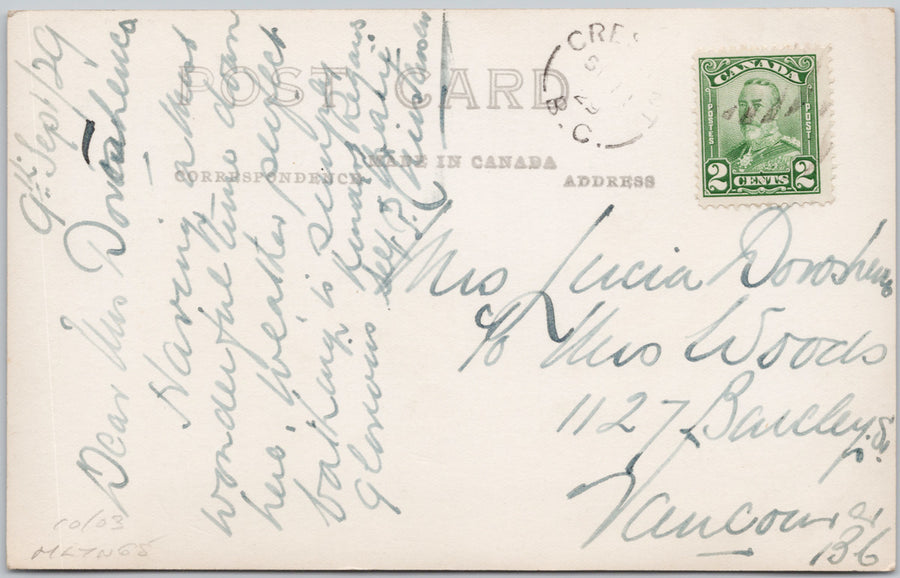 POST CARD
MADE IN CANADA
CORRESPONDENCE
ADDRESS
9th Sept/29
Dear Mrs
Having a most
wonderful time down
here, weather perfect
bathing is simply
glorious kind regards
self
CRES
29
B.C.
CANADA
POSTES POSTAGE
2 CENTS 2
Mrs Lucia Doroshenko
c/o Mrs Woods
1127 Barclay St.
Vancouver
BC
10/03